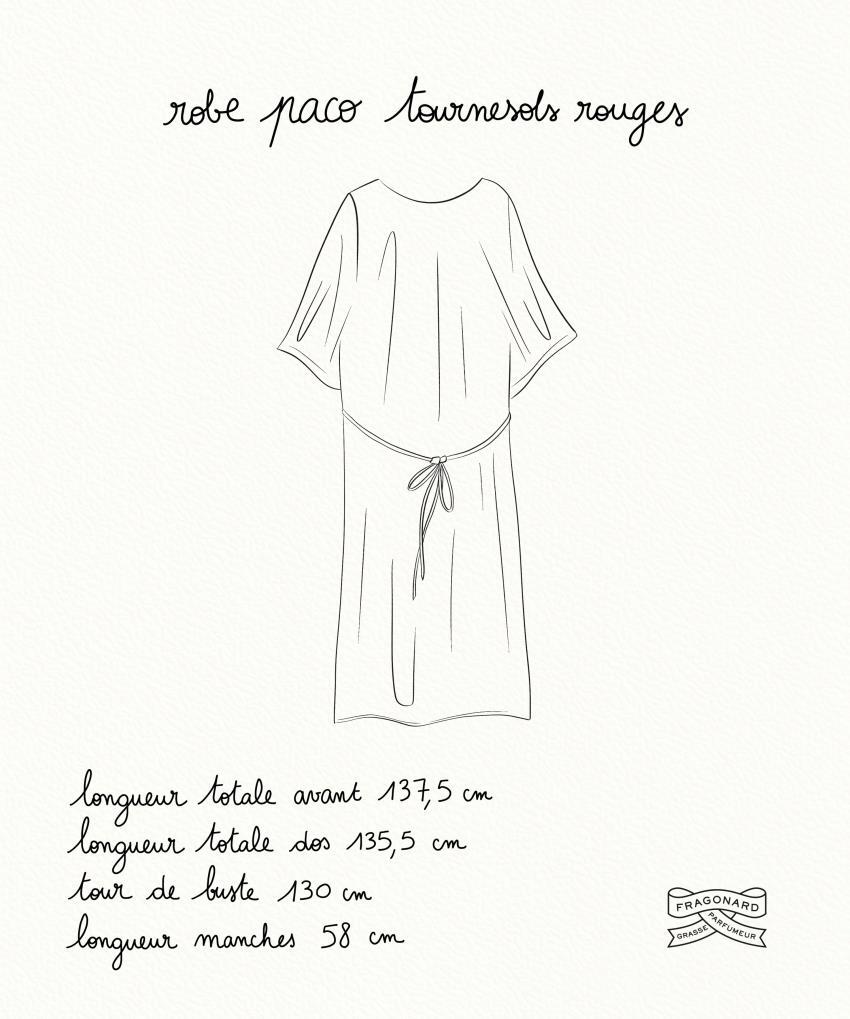 robe paco tournesols rouges
longueur totale avant 137,5 cm
longueur totale dos 135,5 cm
tour de buste 130 cm
longueur manches 58 cm
FRAGONARD
GRASSE PARFUMEUR